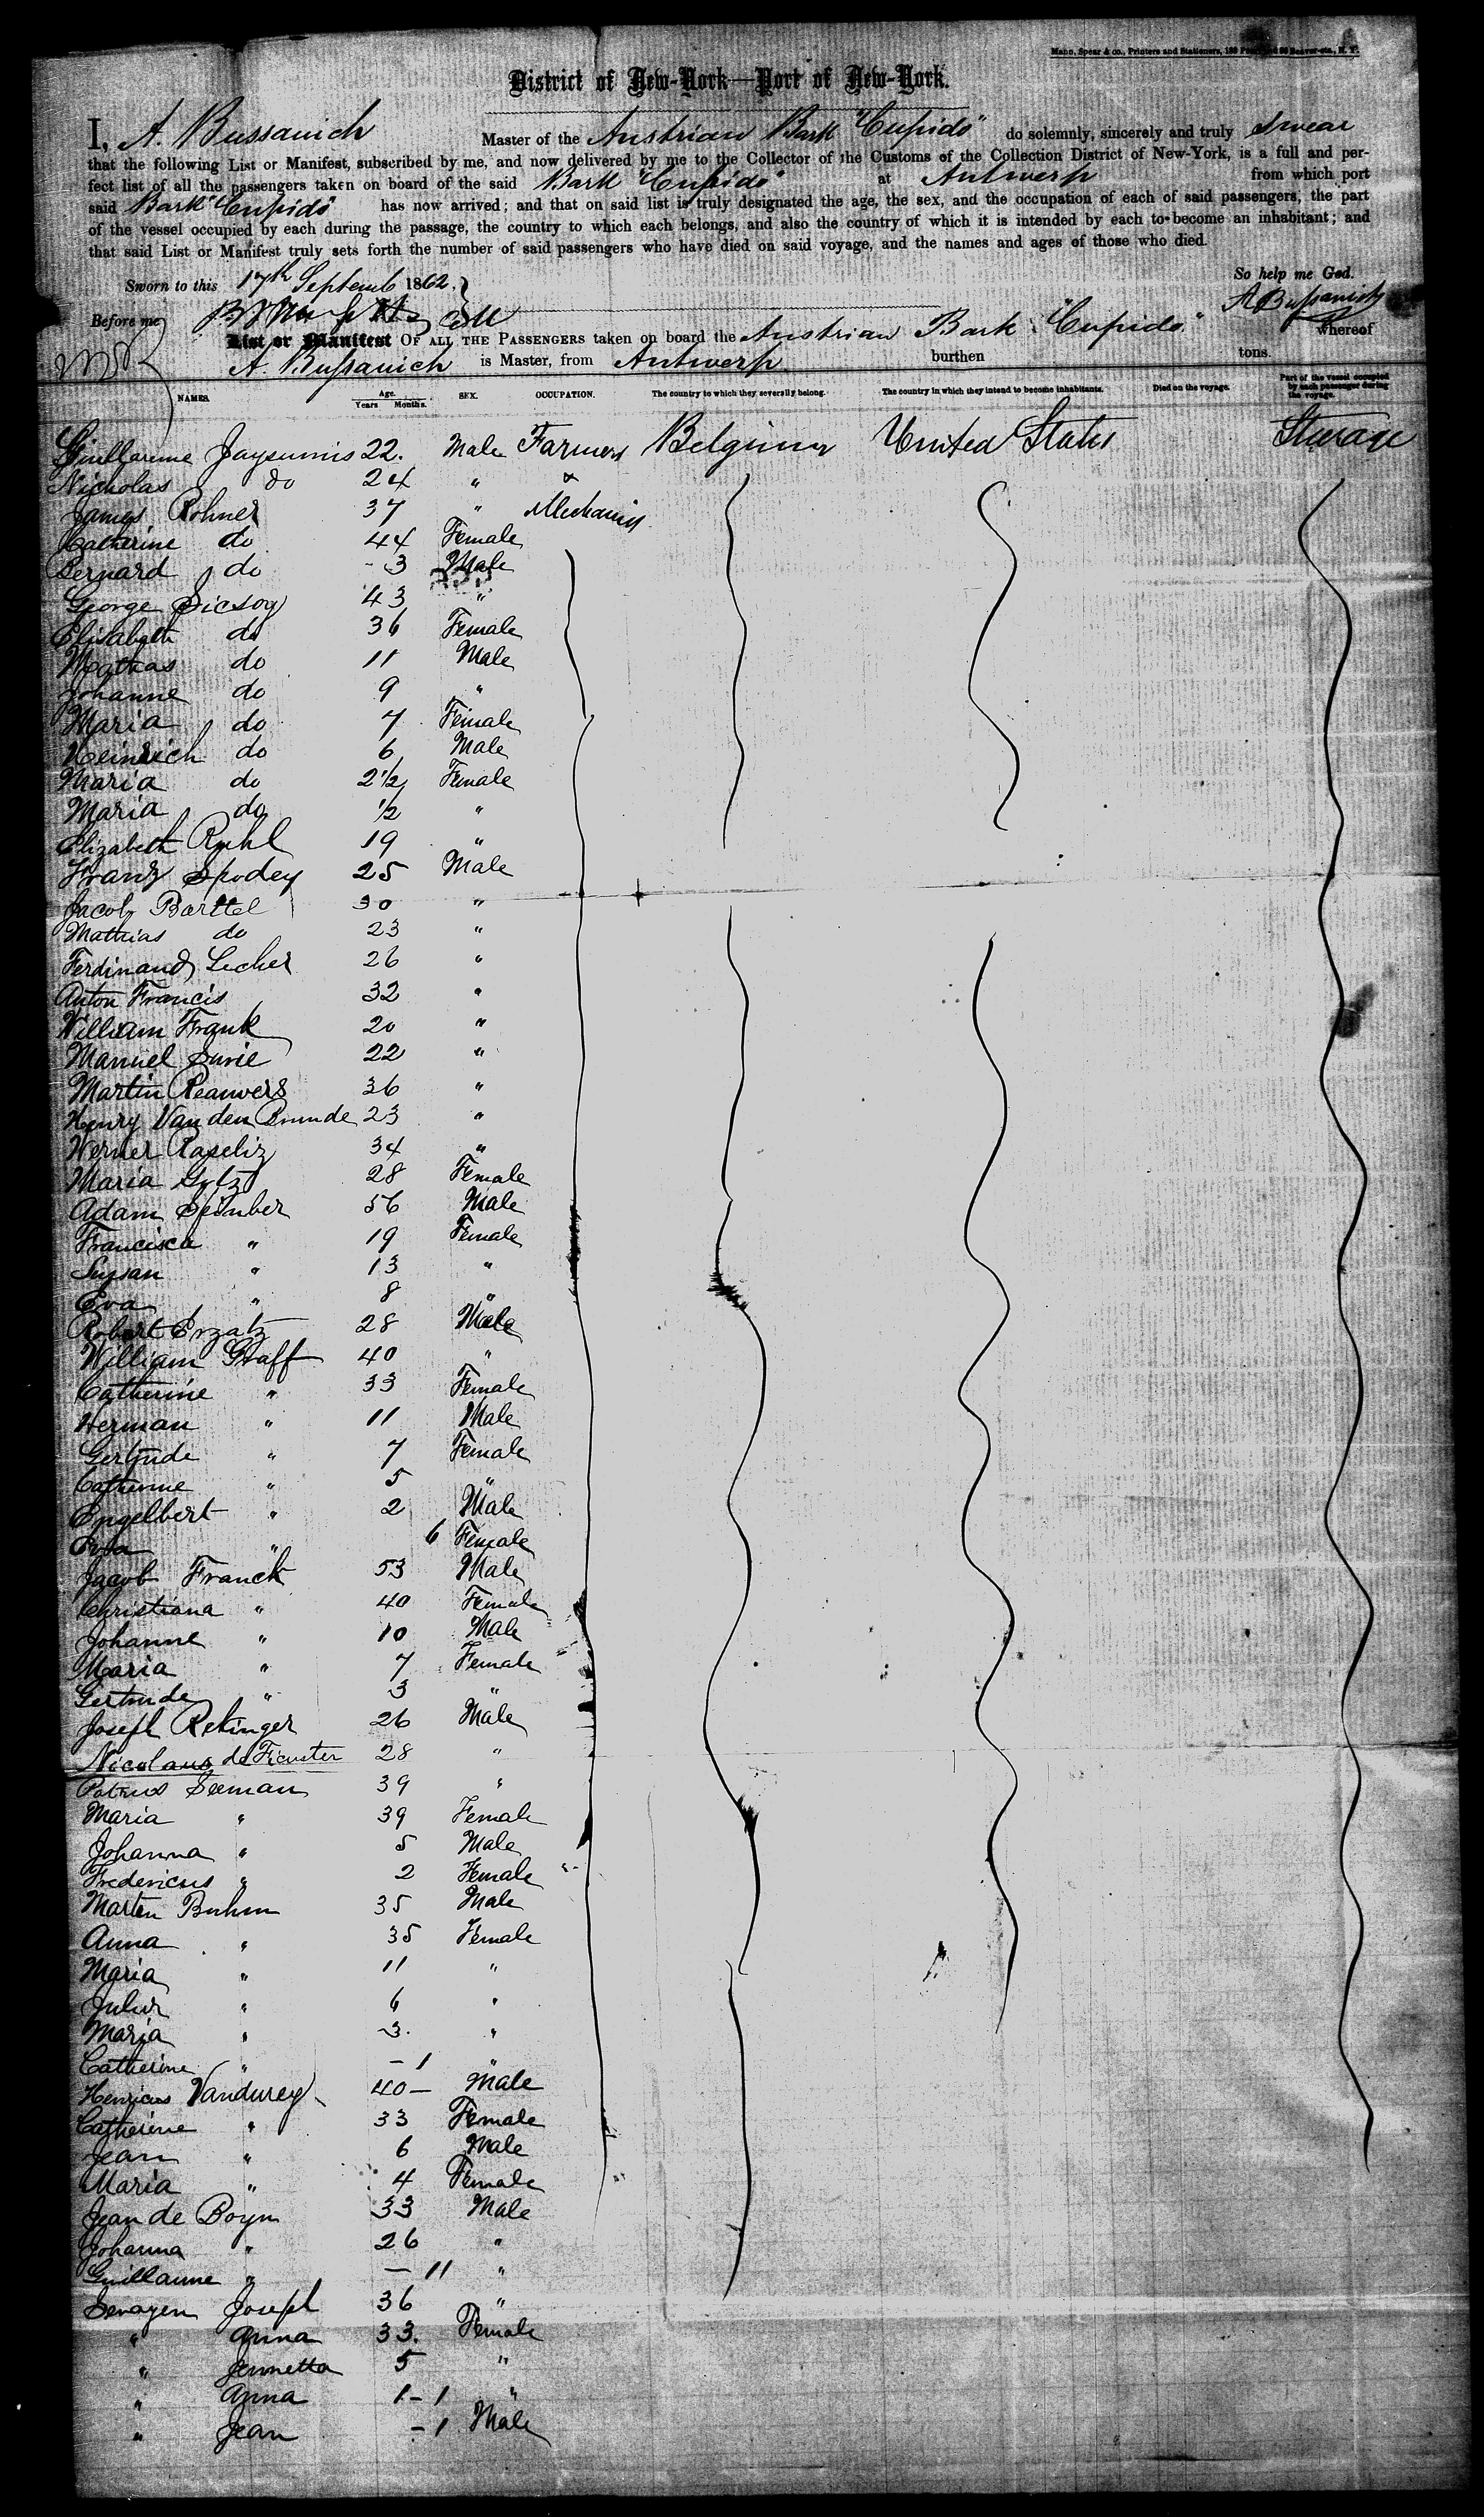 Mann, Spear & co., Printers and Stationers, Beaver-sts., N. Y.
District of New-York—Port of New-York.
I, A. Bussanich Master of the Austrian Bark "Cupido" do solemnly, sincerely and truly swear
that the following List or Manifest, subscribed by me, and now delivered by me to the Collector of the Customs of the Collection District of New-York, is a full and per-
fect list of all the passengers taken on board of the said Bark "Cupido" at Antwerp from which port
said Bark "Cupido" has now arrived; and that on said list is truly designated the age, the sex, and the occupation of each of said passengers, the part
of the vessel occupied by each during the passage, the country to which each belongs, and also the country of which it is intended by each to become an inhabitant; and
that said List or Manifest truly sets forth the number of said passengers who have died on said voyage, and the names and ages of those who died.
Sworn to this 17th Septemb 1862. So help me God.
Before me A Bussanich
List or Manifest OF ALL THE PASSENGERS taken on board the Austrian Bark "Cupido" whereof
A. Bussanich is Master, from Antwerp burthen tons.
NAMES. Age. Years Months. SEX. OCCUPATION. The country to which they severally belong. The country in which they intend to become inhabitants. Died on the voyage. Part of the vessel occupied by each passenger during the voyage.
Guillaume Jaysumis 22. Male Farmers Belgium United States Sturage
Nicholas do 24 "
James Rohner 37 " Mechanics
Catherine do 44 Female
Bernard do - 3 Male
George Sicsoy 43 "
Elisabeth do 36 Female
Mathas do 11 Male
Johanne do 9 "
Maria do 7 Female
Heinrich do 6 Male
Maria do 2 1/2 Female
Maria do 1/2 "
Elizabeth Ruhl 19 "
Franz Spodey 25 Male
Jacob Barttel 30 "
Mathias do 23 "
Ferdinand Lecher 26 "
Anton Francis 32 "
William Frank 20 "
Manuel Surie 22 "
Martin Reauvers 36 "
Henry Van den Bunde 23 "
Werner Rapeliz 34 "
Maria Gytz 28 Female
Adam Spinber 56 Male
Francisca " 19 Female
Suysan " 13 "
Eva " 8 "
Robert Erzatz 28 Male
William Graff 40 "
Catherine " 33 Female
Herman " 11 Male
Gertrude " 7 Female
Catherine " 5 "
Engelbert " 2 Male
Eva " 6 Female
Jacob Franck 53 Male
Christiana " 40 Female
Johanne " 10 Male
Maria " 7 Female
Gertrude " 3 "
Joseph Rekinger 26 Male
Nicolaus de Ficuter 28 "
Petrus Seeman 39 "
Maria " 39 Female
Johanna " 5 Male
Fredericus " 2 Female
Marten Buhm 35 Male
Anna " 35 Female
Maria " 11 "
Julur " 6 "
Maria " 3. "
Catherine " - 1 "
Henricus Vandurey 40 - Male
Catherine " 33 Female
Jean " 6 Male
Maria " 4 Female
Jean de Boyn 33 Male
Johanna " 26 "
Guillaume " - 11 "
Senayen Joseph 36 "
" Anna 33. Female
" Jennetta 5 "
" Anna 1 - 1 "
" Jean - 1 Male